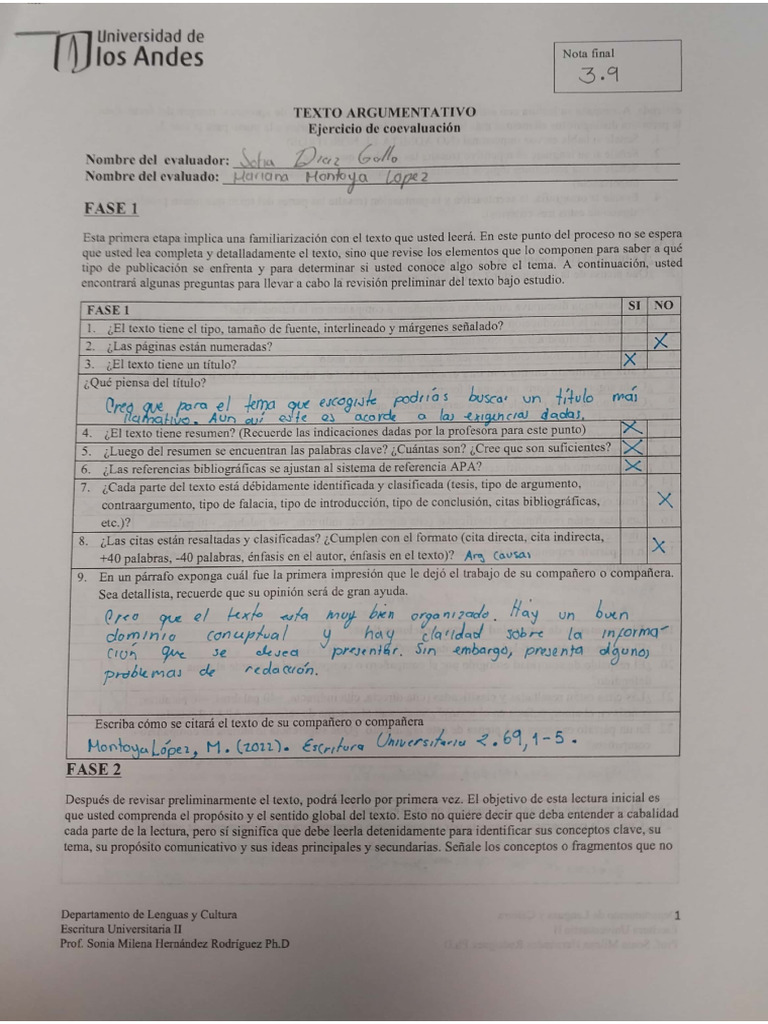 Universidad de
los Andes
Nota final
3.9
TEXTO ARGUMENTATIVO
Ejercicio de coevaluación
Nombre del evaluador: Sofia Diaz Gallo
Nombre del evaluado: Mariana Montoya Lopez
FASE 1
Esta primera etapa implica una familiarización con el texto que usted leerá. En este punto del proceso no se espera
que usted lea completa y detalladamente el texto, sino que revise los elementos que lo componen para saber a qué
tipo de publicación se enfrenta y para determinar si usted conoce algo sobre el tema. A continuación, usted
encontrará algunas preguntas para llevar a cabo la revisión preliminar del texto bajo estudio.
FASE 1 SI NO
1. ¿El texto tiene el tipo, tamaño de fuente, interlineado y márgenes señalado?
2. ¿Las páginas están numeradas? X
3. ¿El texto tiene un título? X
¿Qué piensa del título?
Creo que para el tema que escogiste podrías buscar un título más
llamativo. Aun así este es acorde a las exigencias dadas.
4. ¿El texto tiene resumen? (Recuerde las indicaciones dadas por la profesora para este punto) X
5. ¿Luego del resumen se encuentran las palabras clave? ¿Cuántas son? ¿Cree que son suficientes? X
6. ¿Las referencias bibliográficas se ajustan al sistema de referencia APA? X
7. ¿Cada parte del texto está débidamente identificada y clasificada (tesis, tipo de argumento,
contraargumento, tipo de falacia, tipo de introducción, tipo de conclusión, citas bibliográficas, X
etc.)?
8. ¿Las citas están resaltadas y clasificadas? ¿Cumplen con el formato (cita directa, cita indirecta, X
+40 palabras, -40 palabras, énfasis en el autor, énfasis en el texto)? Arg causal
9. En un párrafo exponga cuál fue la primera impresión que le dejó el trabajo de su compañero o compañera.
Sea detallista, recuerde que su opinión será de gran ayuda.
Creo que el texto esta muy bien organizado. Hay un buen
dominio conceptual y hay claridad sobre la informa-
ción que se desea presentar. Sin embargo, presenta algunos
problemas de redacción.
Escriba cómo se citará el texto de su compañero o compañera
Montoya López, M. (2022). Escritura Universitaria 2. 69, 1-5.
FASE 2
Después de revisar preliminarmente el texto, podrá leerlo por primera vez. El objetivo de esta lectura inicial es
que usted comprenda el propósito y el sentido global del texto. Esto no quiere decir que deba entender a cabalidad
cada parte de la lectura, pero sí significa que debe leerla detenidamente para identificar sus conceptos clave, su
tema, su propósito comunicativo y sus ideas principales y secundarias. Señale los conceptos o fragmentos que no
Departamento de Lenguas y Cultura 1
Escritura Universitaria II
Prof. Sonia Milena Hernández Rodríguez Ph.D